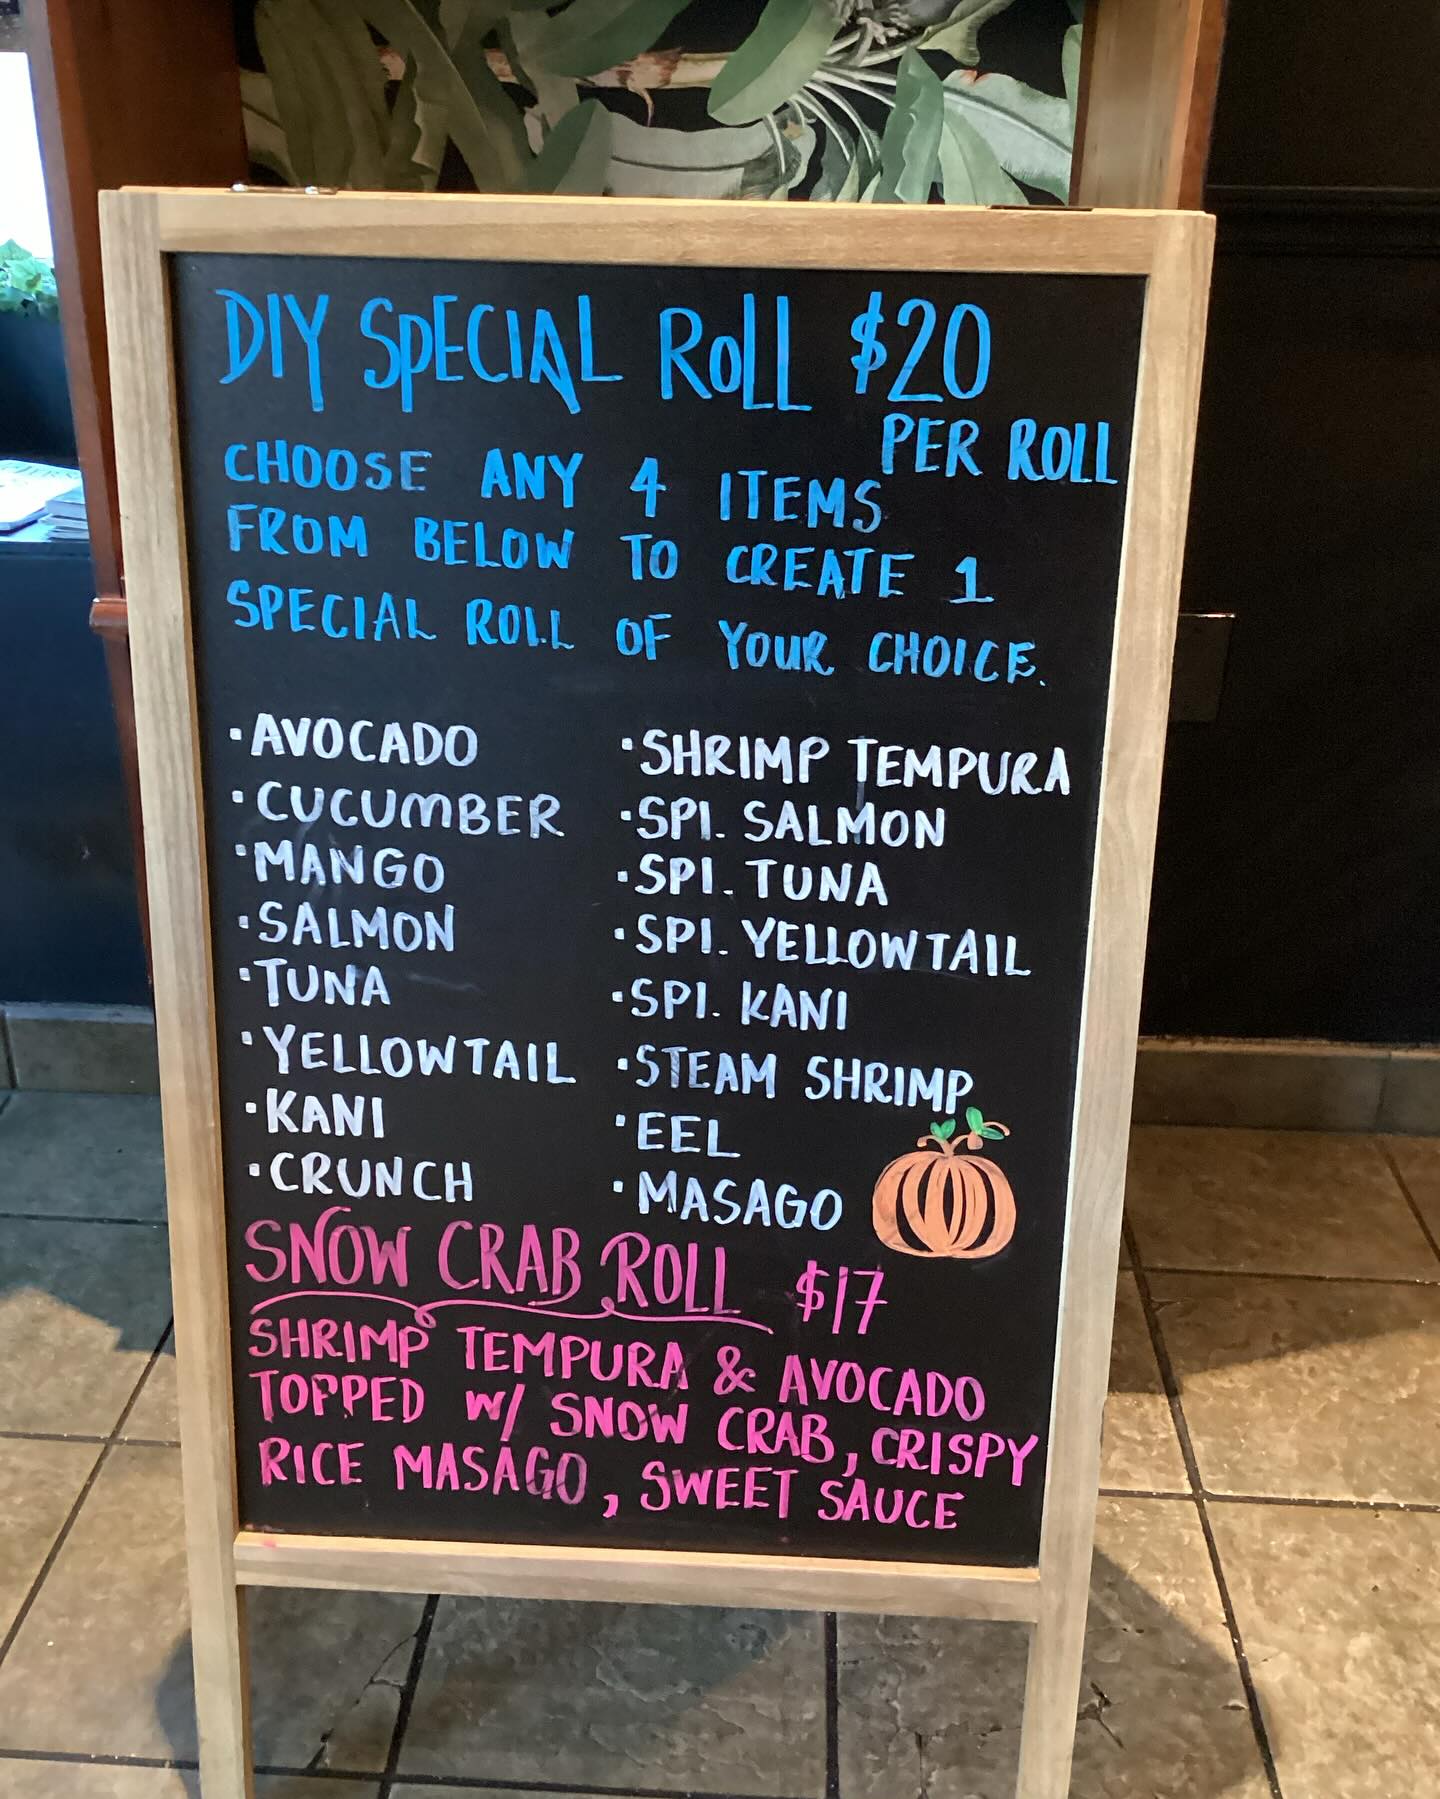 DIY SPECIAL ROLL $20
PER ROLL
CHOOSE ANY 4 ITEMS
FROM BELOW TO CREATE 1
SPECIAL ROLL OF YOUR CHOICE.
·AVOCADO
·CUCUMBER
·MANGO
·SALMON
·TUNA
·YELLOWTAIL
·KANI
·CRUNCH
·SHRIMP TEMPURA
·SPI. SALMON
·SPI. TUNA
·SPI. YELLOWTAIL
·SPI. KANI
·STEAM SHRIMP
·EEL
·MASAGO
SNOW CRAB ROLL $17
SHRIMP TEMPURA & AVOCADO
TOPPED W/ SNOW CRAB, CRISPY
RICE MASAGO, SWEET SAUCE